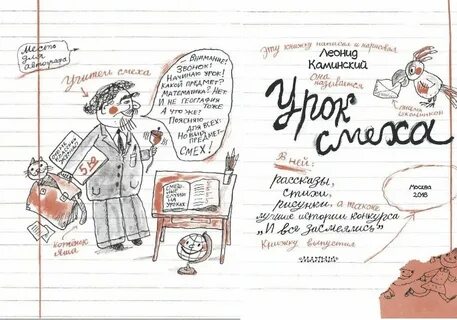 Место
для
автографа
Учитель смеха
Внимание!
Звонок!
Начинаю урок!
Какой предмет?
Математика? Нет
И не география
тоже
А что же?
Поясняю
для всех:
Но вый пред-
мет -
СМЕХ!
5 Ю
котёнок
Яша
смеш-
ные
случаи
на
уроках
Эту книжку написал и нарисовал
Леонид
Каминский
Она
называется
Урок
смеха
В ней:
рассказы,
стихи,
рисунки, а также
лучшие истории конкурса
„И все засмеялись"
Книжку выпустил
Москва
2018